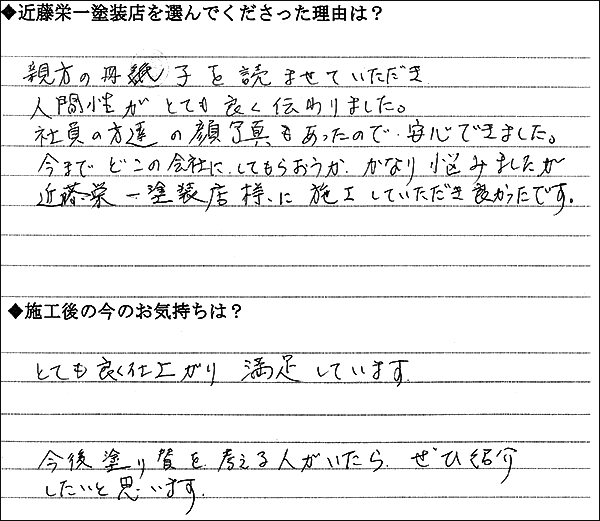 ◆近藤栄一塗装店を選んでくださった理由は？
親方の冊子を読ませていただき
人間性がとても良く伝わりました。
社員の方達の顔写真もあったので、安心できました。
今までどこの会社にしてもらおうか、かなり悩みましたが
近藤栄一塗装店様に施工していただき良かったです。
◆施工後の今のお気持ちは？
とても良く仕上がり満足しています。
今後塗り替を考える人がいたら、ぜひ紹介
したいと思います。